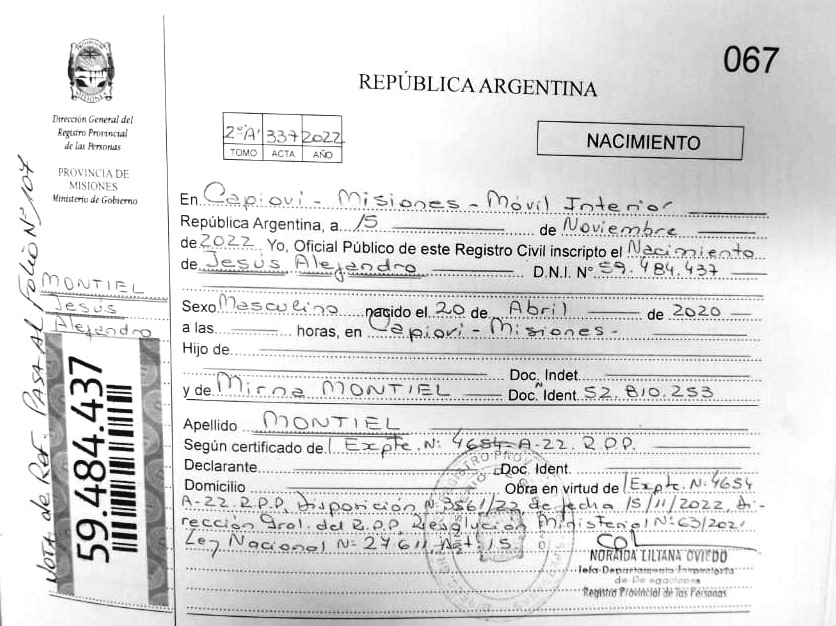 067
REPÚBLICA ARGENTINA
PROVINCIA DE
MISIONES
Dirección General del
Registro Provincial
de las Personas
PROVINCIA DE
MISIONES
Ministerio de Gobierno
2º"A" 337 2022
TOMO ACTA AÑO
NACIMIENTO
En Capiovi - Misiones - Móvil Interior
República Argentina, a 15 de Noviembre
de 2022 Yo, Oficial Público de este Registro Civil inscripto el Nacimiento
de Jesús Alejandro D.N.I. Nº 59.484.437
Sexo Masculino nacido el 20 de Abril de 2020
a las horas, en Capiovi - Misiones -
Hijo de
Doc. Indet.
y de Mirna MONTIEL Doc. Ident. 52.810.253
Apellido MONTIEL
Según certificado de Expte. Nº 4654-A-22 R.P.P.
Declarante Doc. Ident.
Domicilio Obra en virtud de Expte. Nº 4654
A-22 R.P.P. Disposición Nº 5561/22 de fecha 15/11/2022, Di-
rección Gral. del R.P.P. Resolución Ministerial Nº 63/2021
Ley Nacional Nº 27611 Art. 15
NORAIDA LILIANA OVIEDO
Jefa Departamento Inspectoría
de Delegaciones
Registro Provincial de las Personas
MONTIEL
Jesús
Alejandro
59.484.437
NOTA de Ref. PASA AL Folio Nº 107